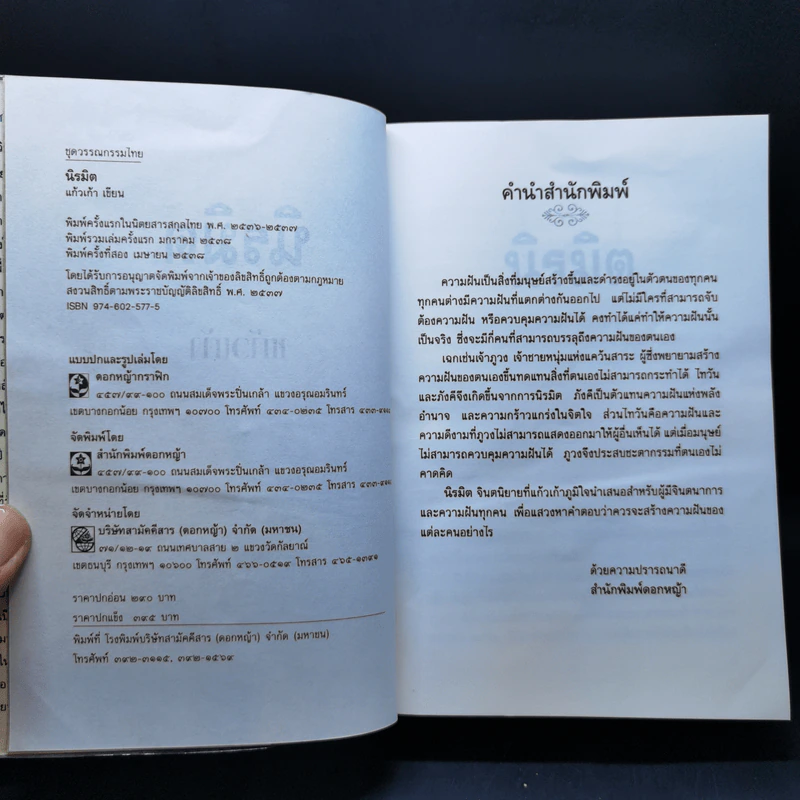 ชุดวรรณกรรมไทย
นิรมิต
แก้วเก้า เขียน
พิมพ์ครั้งแรกในนิตยสารสกุลไทย พ.ศ. ๒๕๓๖-๒๕๓๗
พิมพ์รวมเล่มครั้งแรก มกราคม ๒๕๓๘
พิมพ์ครั้งที่สอง เมษายน ๒๕๓๘
โดยได้รับการอนุญาตจัดพิมพ์จากเจ้าของลิขสิทธิ์ถูกต้องตามกฎหมาย
สงวนสิทธิ์ตามพระราชบัญญัติลิขสิทธิ์ พ.ศ. ๒๕๓๗
ISBN 974-602-577-5
แบบปกและรูปเล่มโดย
ดอกหญ้ากราฟิก
๔๕๗/๙๙-๑๐๐ ถนนสมเด็จพระปิ่นเกล้า แขวงอรุณอมรินทร์
เขตบางกอกน้อย กรุงเทพฯ ๑๐๗๐๐ โทรศัพท์ ๔๓๔-๐๒๓๕ โทรสาร
จัดพิมพ์โดย
สำนักพิมพ์ดอกหญ้า
๔๕๗/๙๙-๑๐๐ ถนนสมเด็จพระปิ่นเกล้า แขวงอรุณอมรินทร์
เขตบางกอกน้อย กรุงเทพฯ ๑๐๗๐๐ โทรศัพท์ ๔๓๔-๐๒๓๕ โทรสาร
จัดจำหน่ายโดย
บริษัทสามัคคีสาร (ดอกหญ้า) จำกัด (มหาชน)
๗๑/๑๒-๑๙ ถนนเทศบาลสาย ๒ แขวงวัดกัลยาณ์
เขตธนบุรี กรุงเทพฯ ๑๐๖๐๐ โทรศัพท์ ๔๖๖-๐๕๑๙ โทรสาร ๔๖๕-๑๓๙๑
ราคาปกอ่อน ๒๙๐ บาท
ราคาปกแข็ง ๓๙๕ บาท
พิมพ์ที่ โรงพิมพ์บริษัทสามัคคีสาร (ดอกหญ้า) จำกัด (มหาชน)
โทรศัพท์ ๓๙๒-๓๑๑๕, ๓๙๒-๑๕๖๙
คำนำสำนักพิมพ์
ความฝันเป็นสิ่งที่มนุษย์สร้างขึ้นและดำรงอยู่ในตัวตนของทุกคน
ทุกคนต่างมีความฝันที่แตกต่างกันออกไป แต่ไม่มีใครที่สามารถจับ
ต้องความฝัน หรือควบคุมความฝันได้ คงทำได้แค่ทำให้ความฝันนั้น
เป็นจริง ซึ่งจะมีกี่คนที่สามารถบรรลุถึงความฝันของตนเอง
เฉกเช่นเจ้าภูวง เจ้าชายหนุ่มแห่งแคว้นสาระ ผู้ซึ่งพยายามสร้าง
ความฝันของตนเองขึ้นทดแทนสิ่งที่ตนเองไม่สามารถกระทำได้ ไทวัน
และภังคีจึงเกิดขึ้นจากการนิรมิต ภังคีเป็นตัวแทนความฝันแห่งพลัง
อำนาจ และความกร้าวแกร่งในจิตใจ ส่วนไทวันคือความฝันและ
ความดีงามที่ภูวงไม่สามารถแสดงออกมาให้ผู้อื่นเห็นได้ แต่เมื่อมนุษย์
ไม่สามารถควบคุมความฝันได้ ภูวงจึงประสบชะตากรรมที่ตนเองไม่
คาดคิด
นิรมิต จินตนิยายที่แก้วเก้าภูมิใจนำเสนอสำหรับผู้มีจินตนาการ
และความฝันทุกคน เพื่อแสวงหาคำตอบว่าควรจะสร้างความฝันของ
แต่ละคนอย่างไร
ด้วยความปรารถนาดี
สำนักพิมพ์ดอกหญ้า